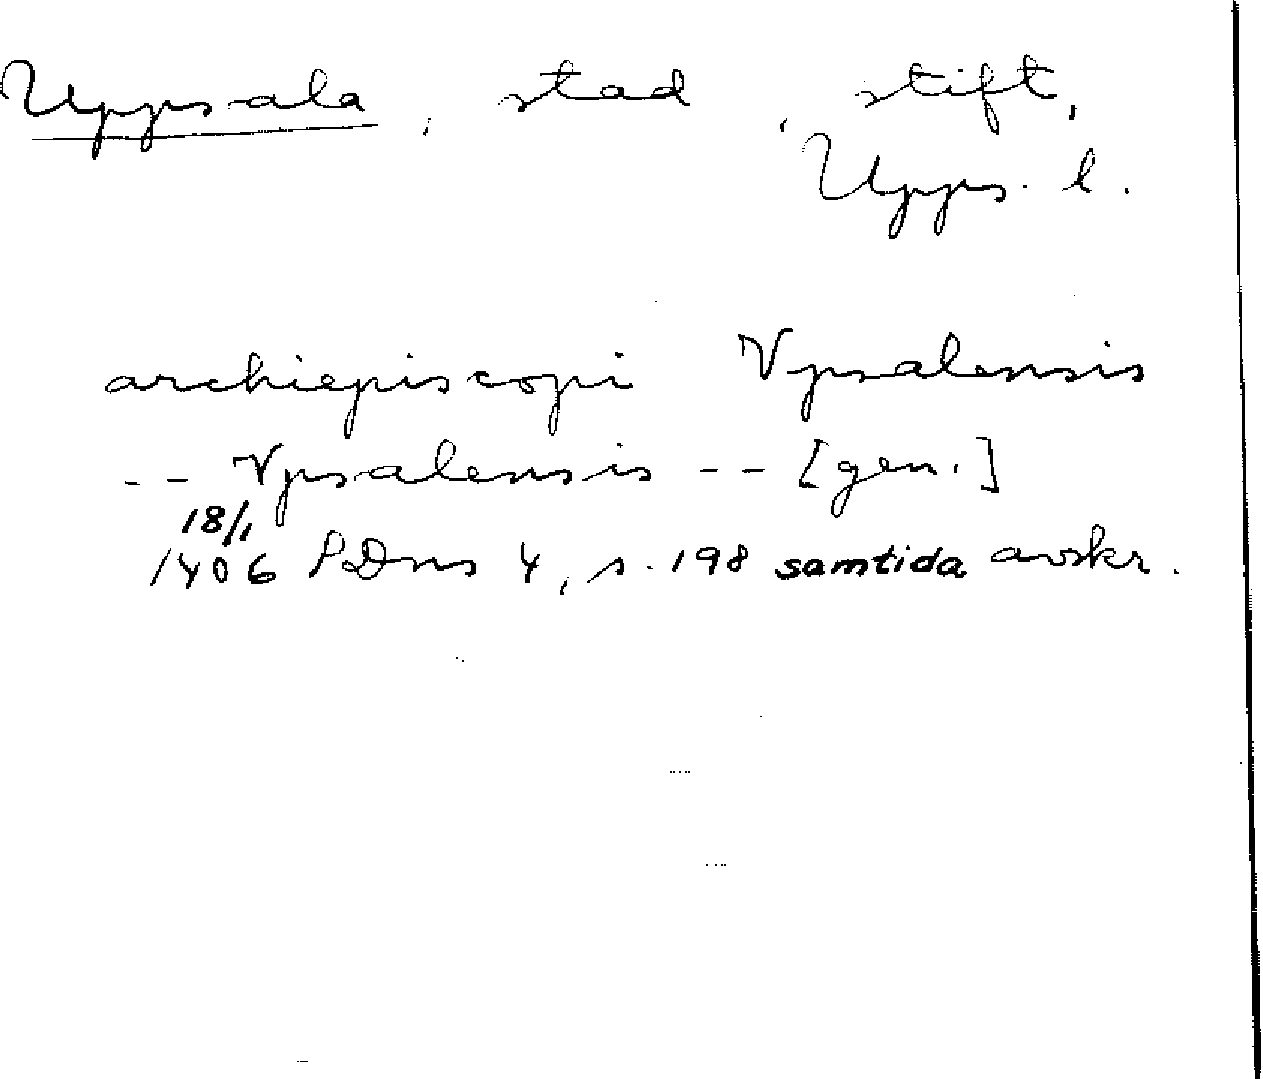 Uppsala, stad, stift,
Upps. l.
archiepiscopi Vpsalensis
-- Vpsalensis -- [gen.]
18/1
1406 PDns 4, s. 198 samtida avskr.